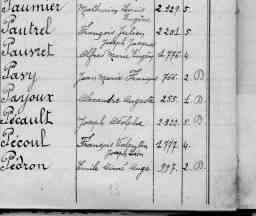 Paumier Mathurin Louis 2.929. 5.
Eugène
Pautrel François Julien 2201. 5.
Joseph Jacques
Pauvret Alfred Marie Eugène 1.776. 4.
Pavy Jean Marie François 766. 2. B
Payoux Alexandre Auguste 255. 1. B
Pécault Joseph Adolphe 2822. 5. B
Pécoul François Valentin 1.717. 4.
Pédron Emile Aimé Ange 997. 2. B